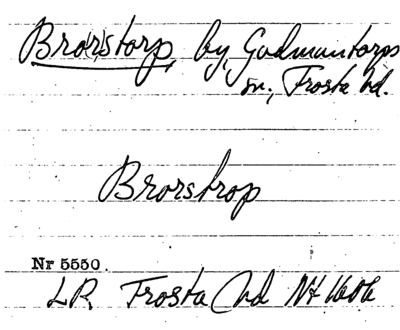 Bro(r)storp, by, Gudmuntorps
sn., Frosta hd.
Brorstrop
Nr 5550.
LR Frosta hd N:1